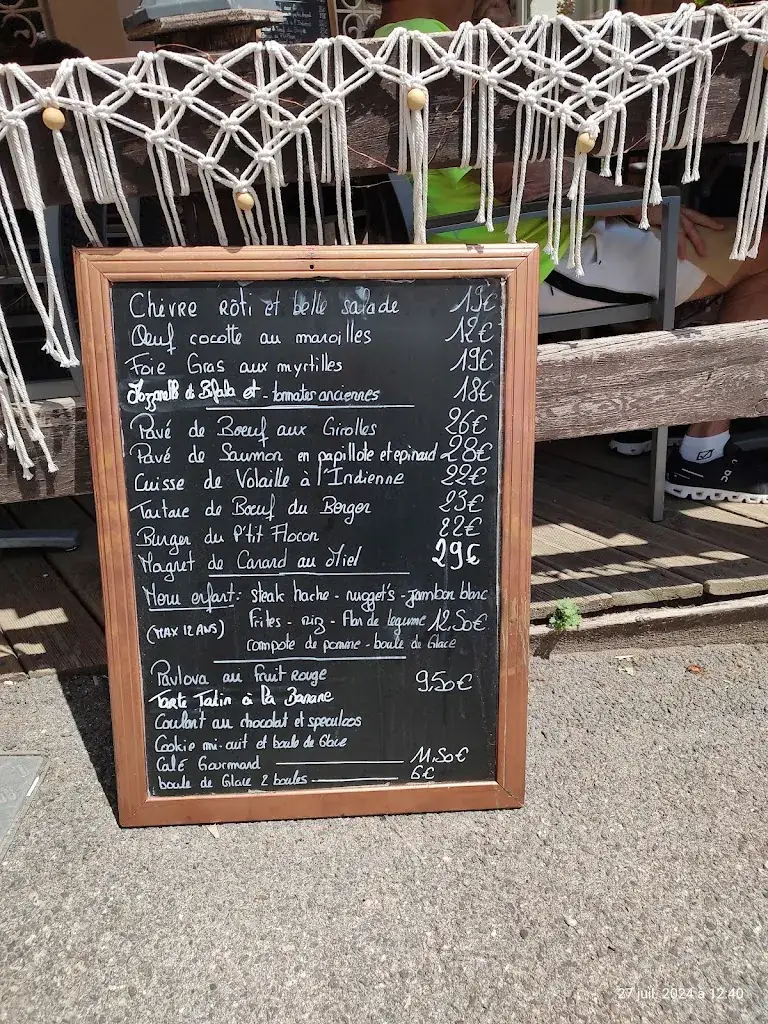 Chèvre rôti et belle salade 13€
Œuf cocotte au maroilles 12€
Foie Gras aux myrtilles 19€
Mozzarella di Bufala et - tomates anciennes 18€
Pavé de Boeuf aux Girolles 26€
Pavé de Saumon en papillote et epinard 28€
Cuisse de Volaille à l'Indienne 22€
Tartare de Boeuf du Berger 23€
Burger du P'tit Flocon 22€
Magret de Canard au Miel 29€
Menu enfant: steak hache - nugget's - jambon blanc
(MAX 12 ANS) Frites - riz - Flan de legume 12,50€
compote de pomme - boule de Glace
Pavlova au fruit Rouge 9,50€
Tarte Tatin à la Banane
Coulant au chocolat et speculoos
Cookie mi-cuit et boule de Glace
Café Gourmand 11,50€
boule de Glace 2 boules 6€
27 juil. 2024 à 12:40